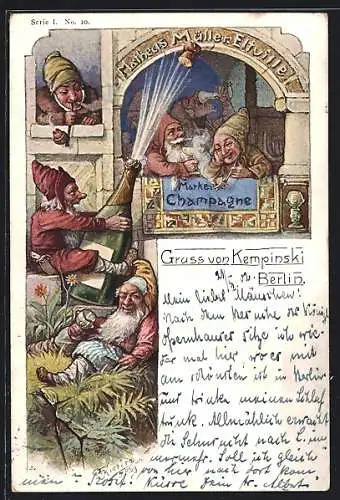 Serie I. No. 10.
Matheus Müller Eltville
Marke
Champagne
Gruss von Kempinski
Berlin.
Mein liebes Mäuschen!
Nach dem Besuche des Königl.
Opernhauses sitze ich wie-
der mal hier, wo es mit
am schönsten ist in Berlin
und trinke meinen Schlaf
trunk. Allmählich erwacht
die Sehnsucht nach
Soll ich gleich
von hier nach dort kom
men? Küsse Dein tr. Albert